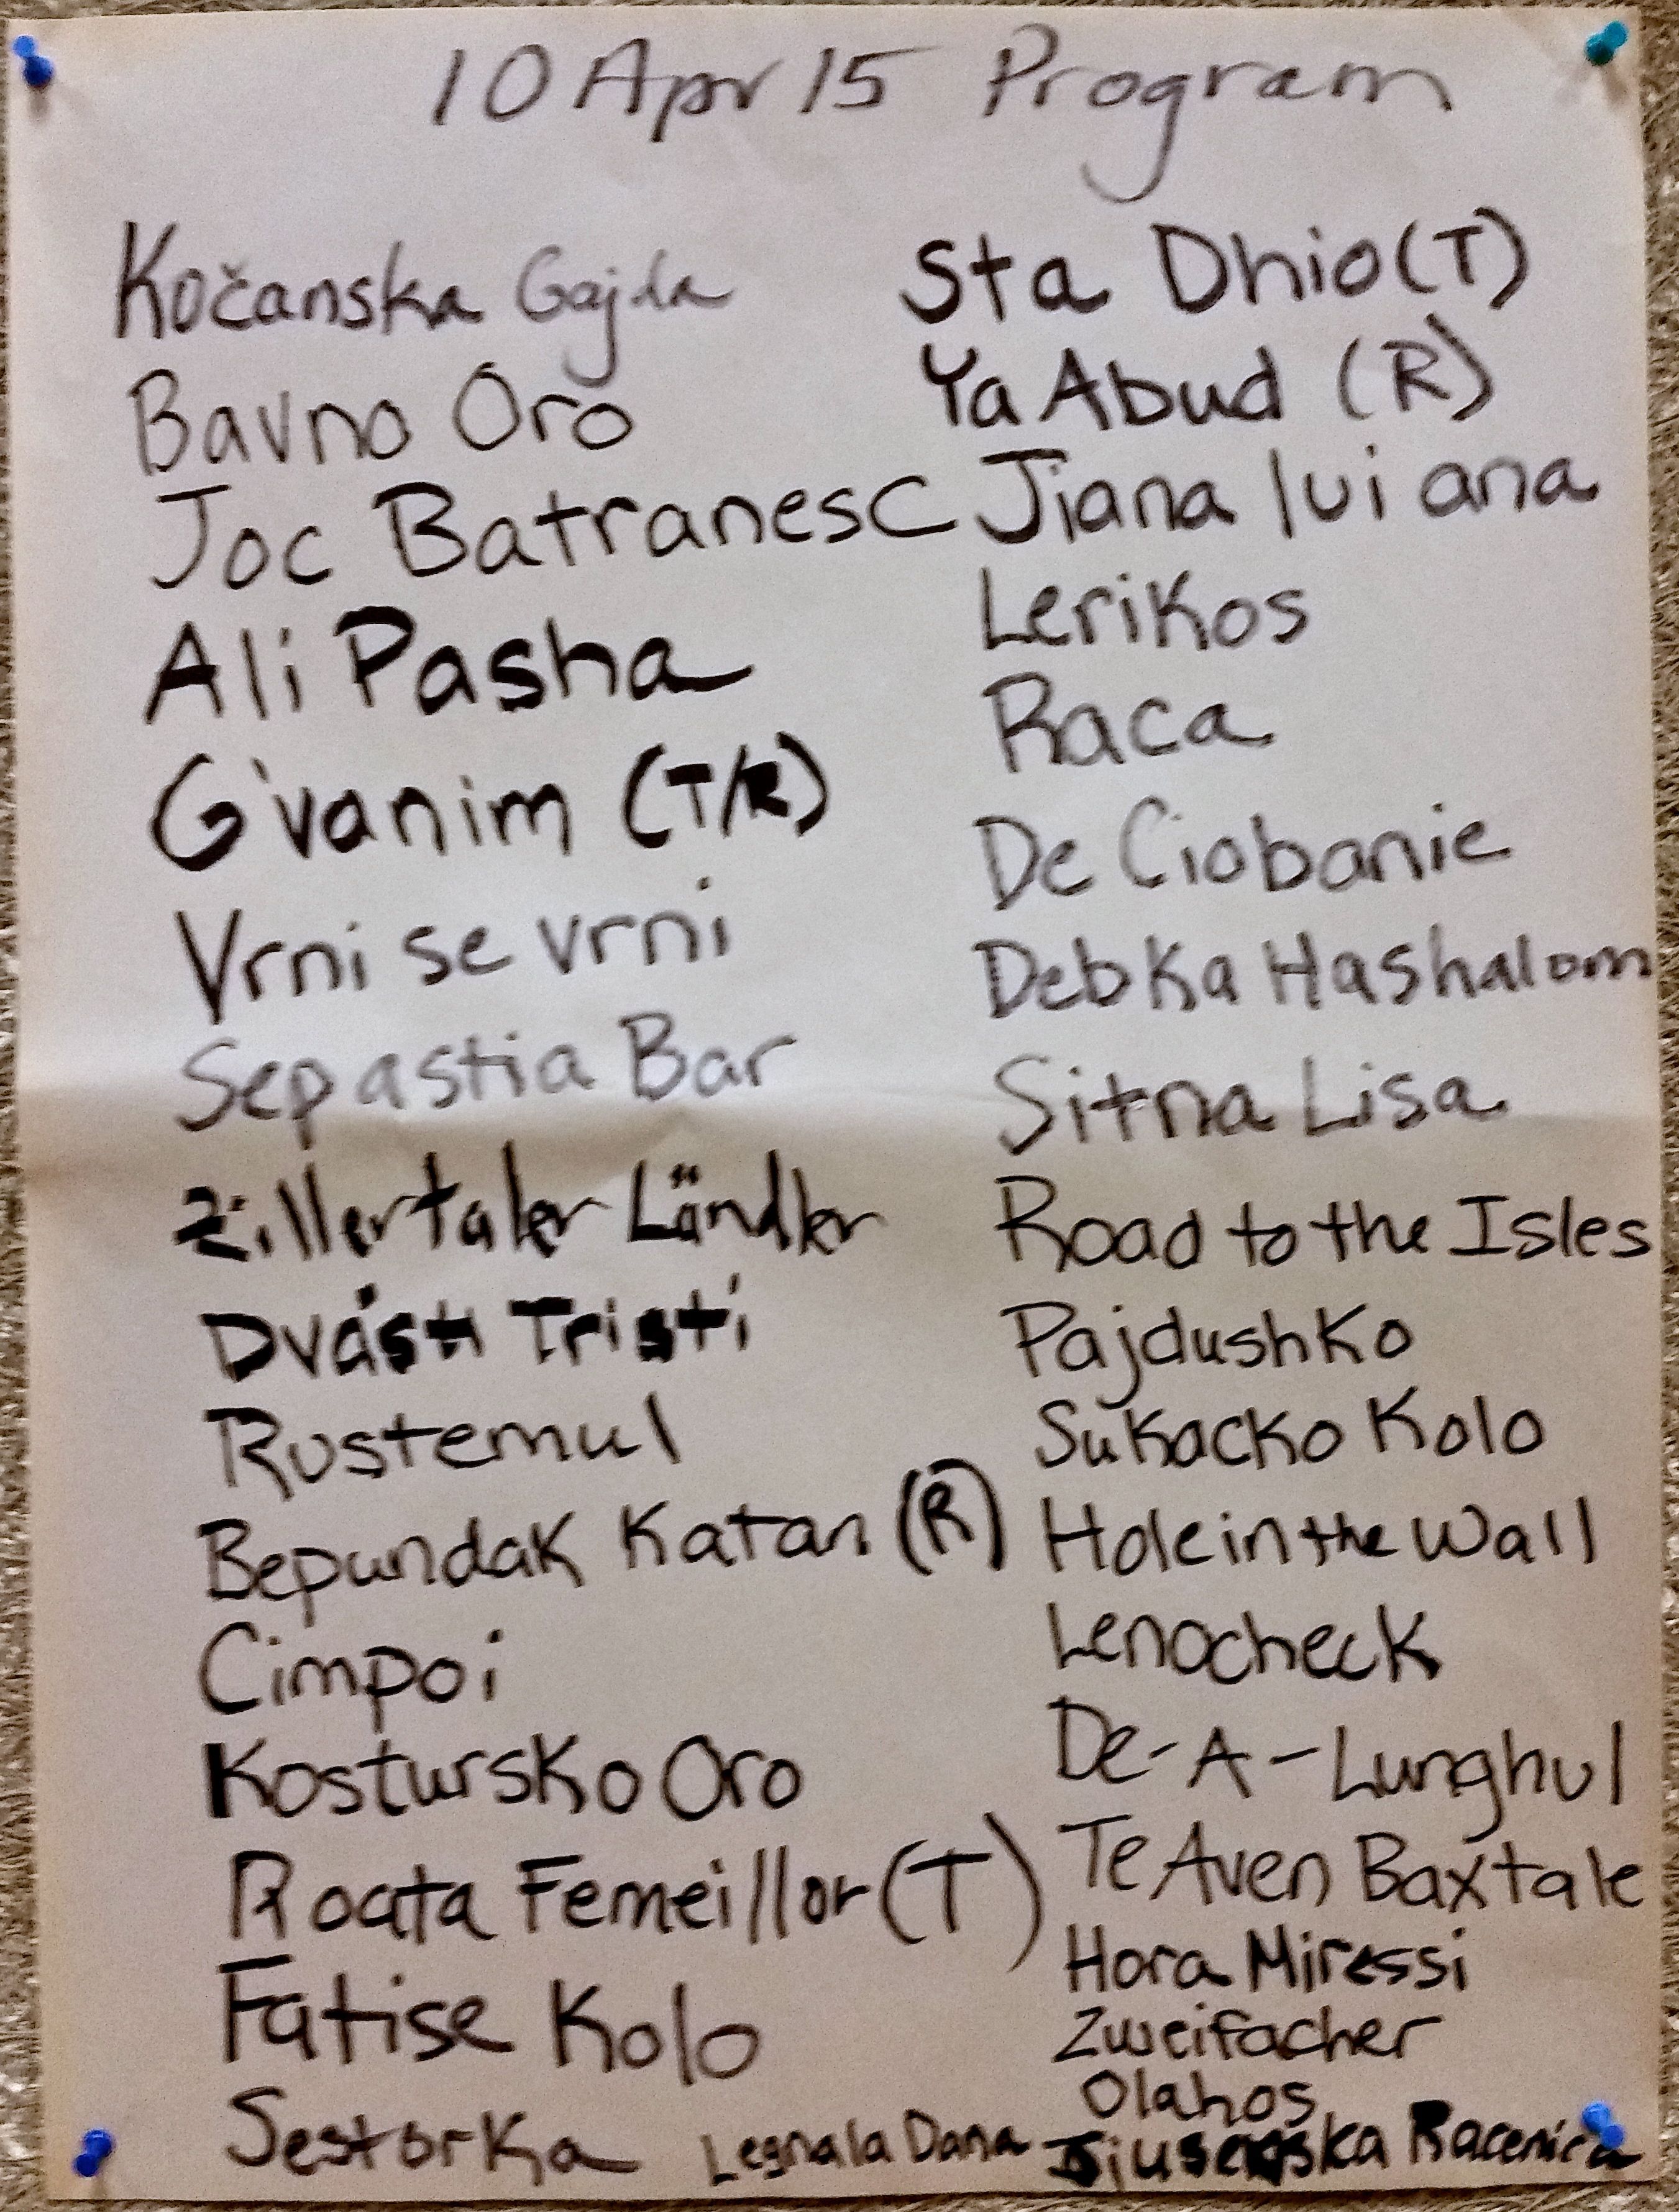 10 Apr 15 Program
Kočanska Gajda
Bavno Oro
Joc Batranesc
Ali Pasha
G'vanim (T/R)
Vrni se vrni
Sepastia Bar
Zillertaler Ländler
Dvásti Tristi
Rustemul
Bepundak Katan (R)
Cimpoi
Kostursko Oro
Roata Femeillor (T)
Fatise Kolo
Sestorka
Legnala Dana
Sta Dhio (T)
Ya Abud (R)
Jiana lui ana
Lerikos
Raca
De Ciobanie
Debka Hashalom
Sitna Lisa
Road to the Isles
Pajdushko
Sukacko Kolo
Hole in the Wall
Lenocheck
De-A-Lunghul
Te Aven Baxtale
Hora Miressi
Zweifacher
Olahos
Racenica